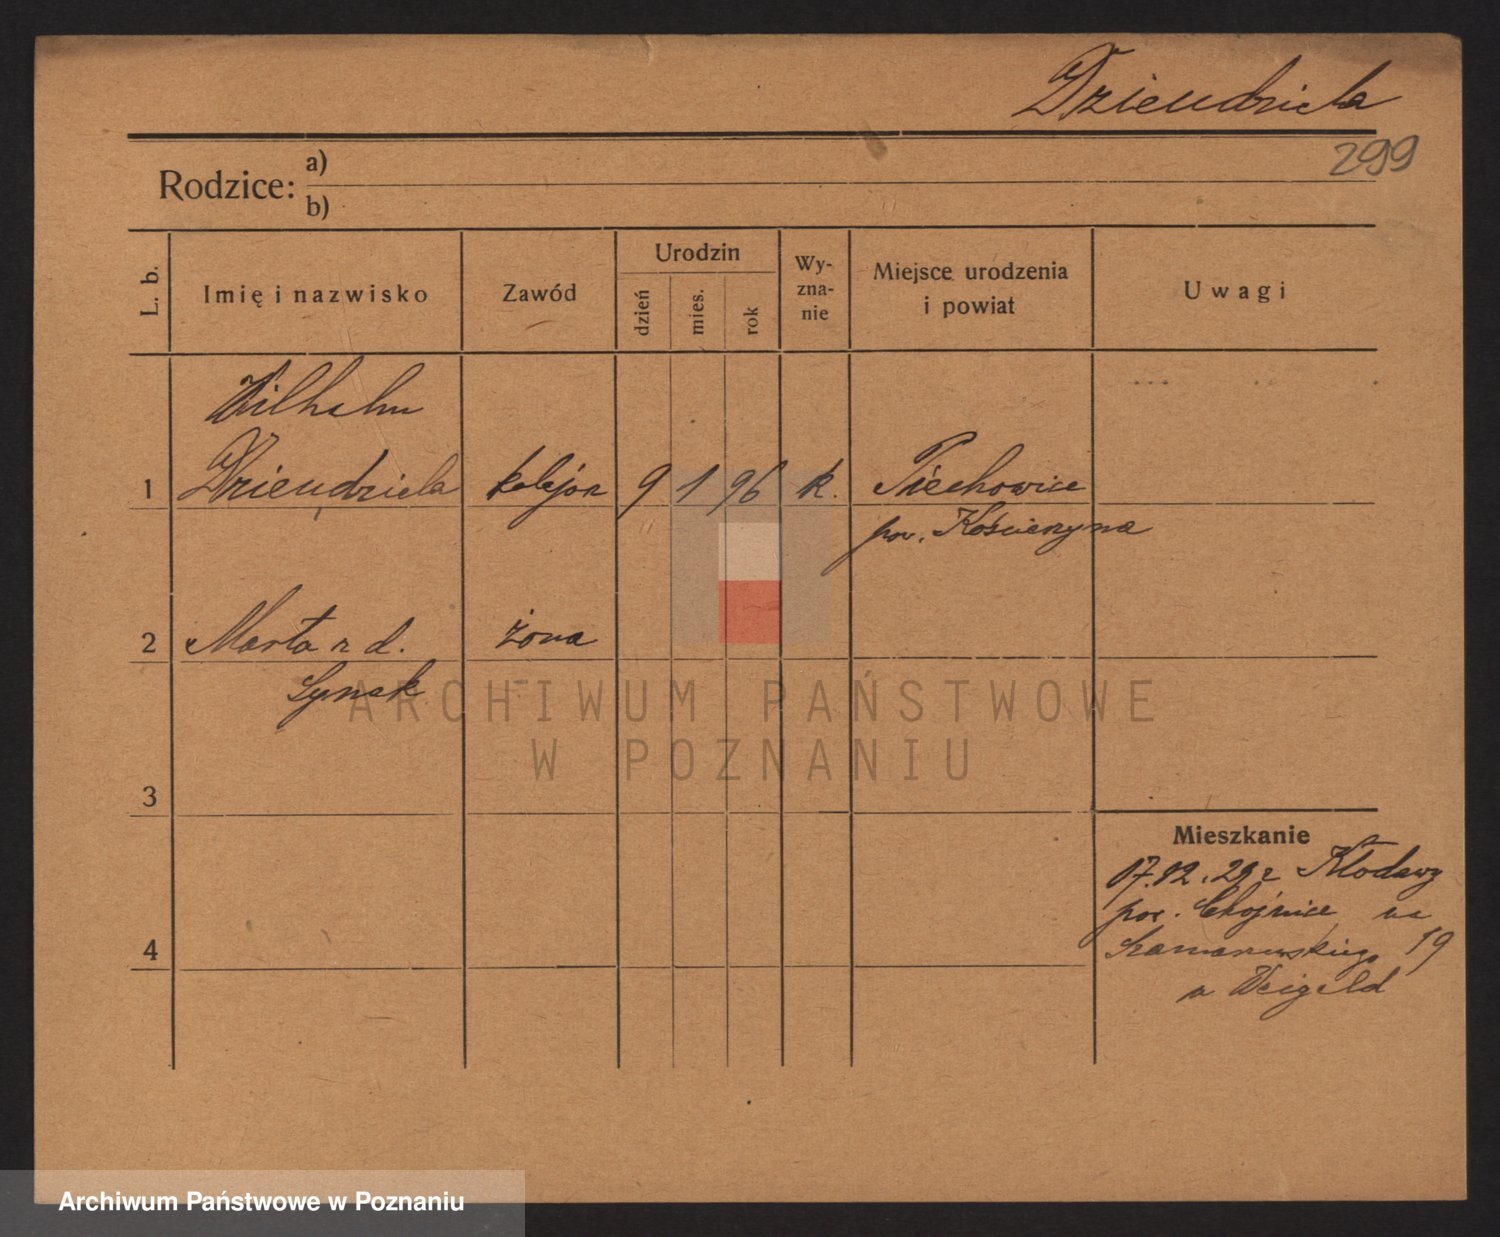 Dziendziela
299
Rodzice: a)
b)
L. b.
Imię i nazwisko
Zawód
Urodzin
dzień
mies.
rok
Wy-
zna-
nie
Miejsce urodzenia
i powiat
Uwagi
Wilhelm
1 Dziendziela kolejarz 9 1 96 k. Piechowice
pow. Kościerzyna
2 Marta z d. żona
Synak
3
4
Mieszkanie
17.12.29 z Kłodawy
pow. Chojnice na
19
u Weigeld
ARCHIWUM PAŃSTWOWE
W POZNANIU
Archiwum Państwowe w Poznaniu